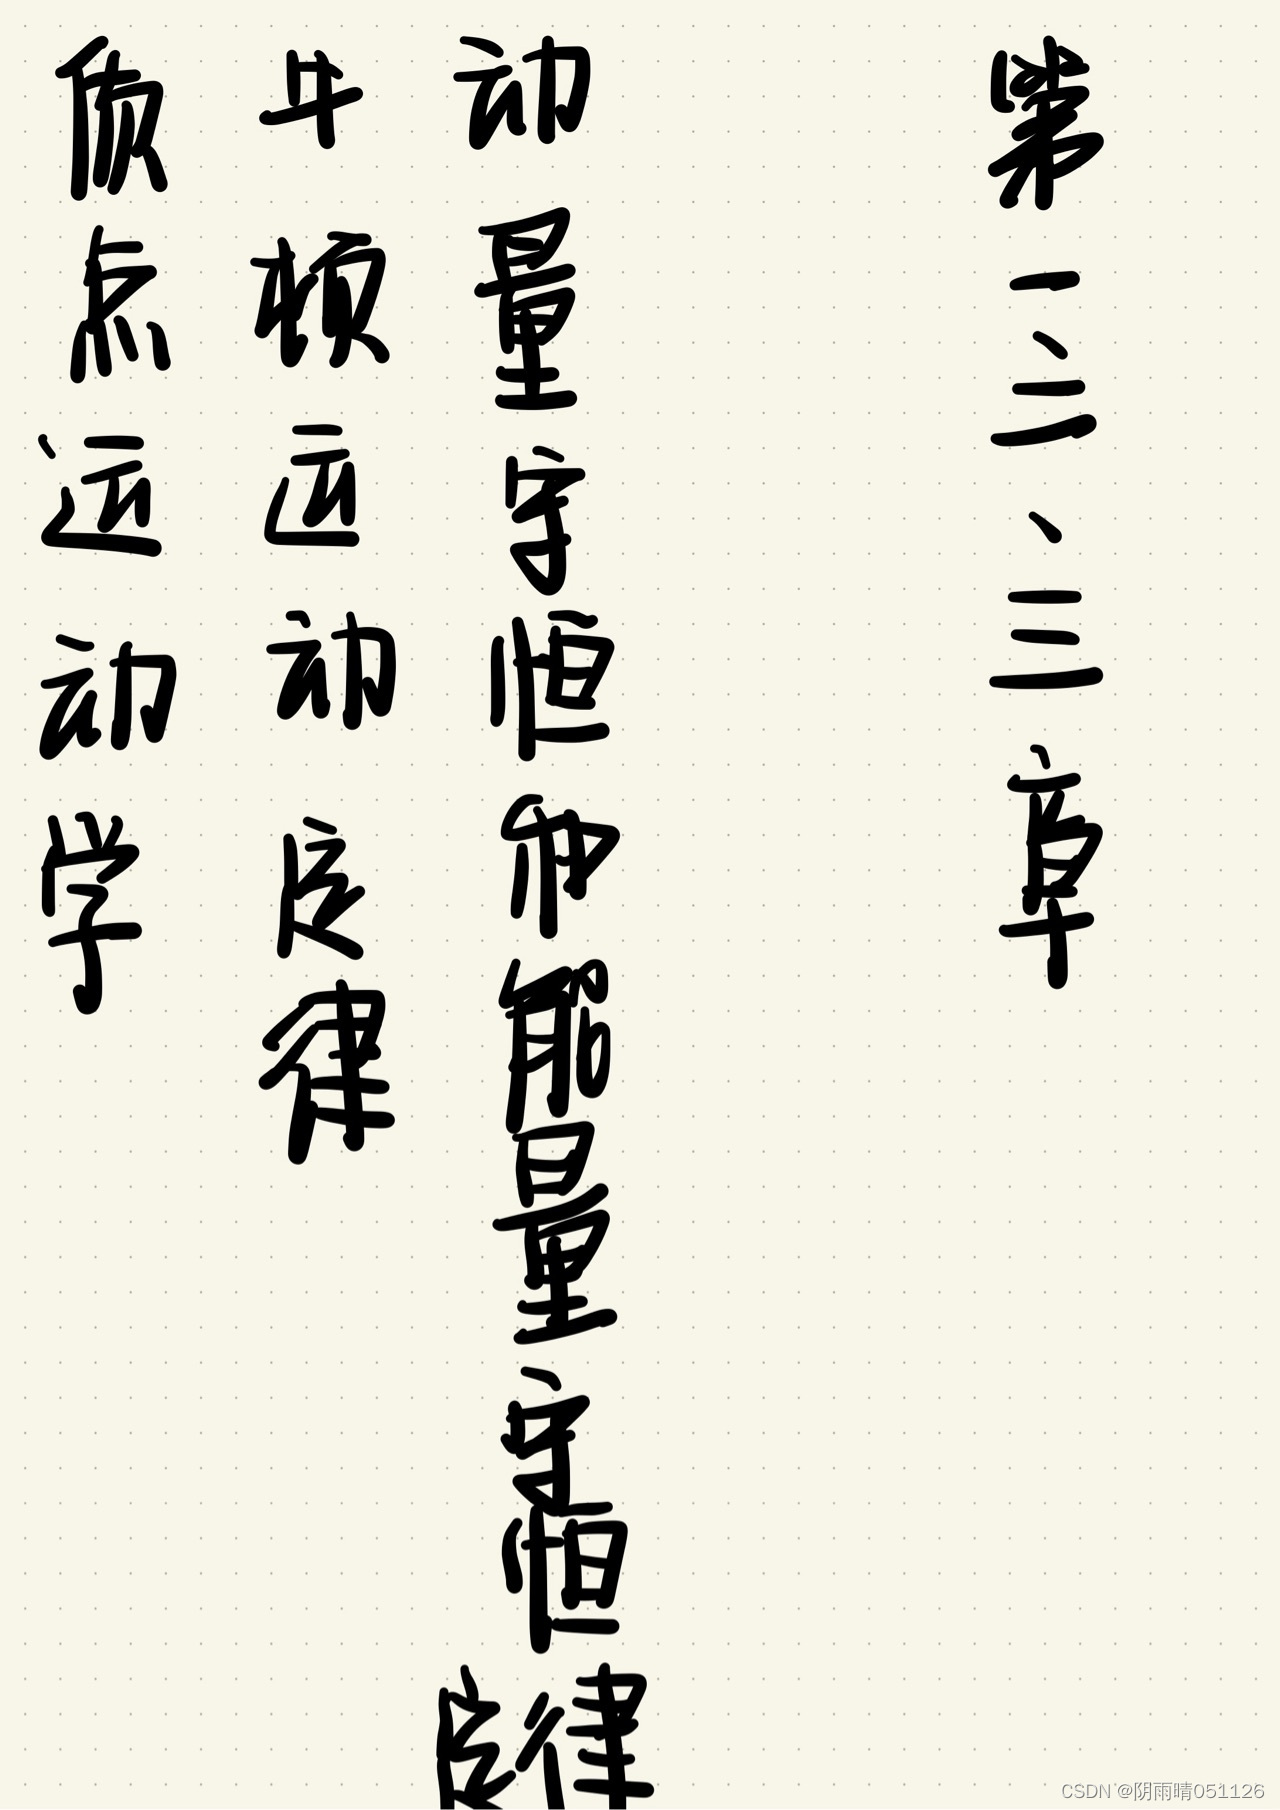 质点运动学
牛顿运动定律
动量守恒和能量守恒定律
第一、二、三章
CSDN @阴雨晴051126